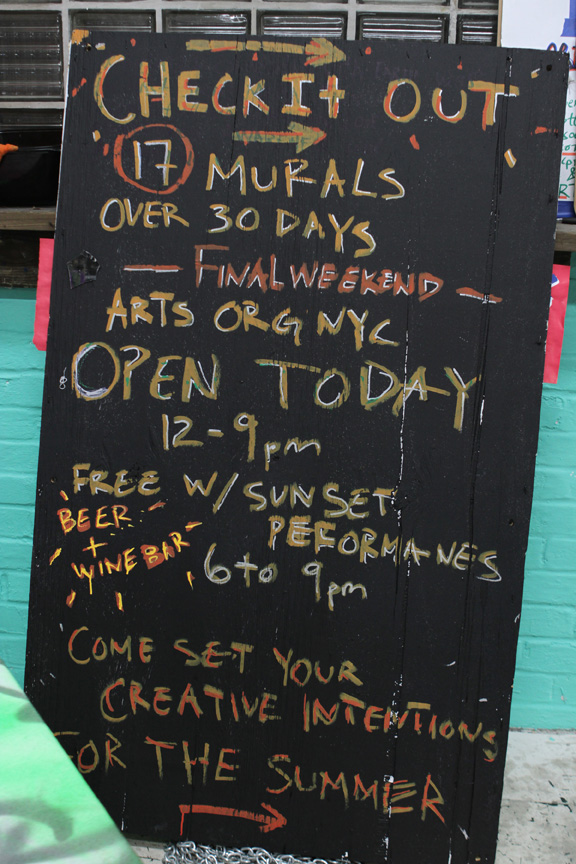 CHECK It OUT
17 MURALS
OVER 30 DAYS
— FINAL WEEKEND —
ARTS ORG NYC
OPEN TODAY
12-9pm
FREE W/ SUNSET
PEFORMANES
6 to 9pm
BEER
+
WINE BAR
COME SET YOUR
CREATIVE INTENTIONS
FOR THE SUMMER